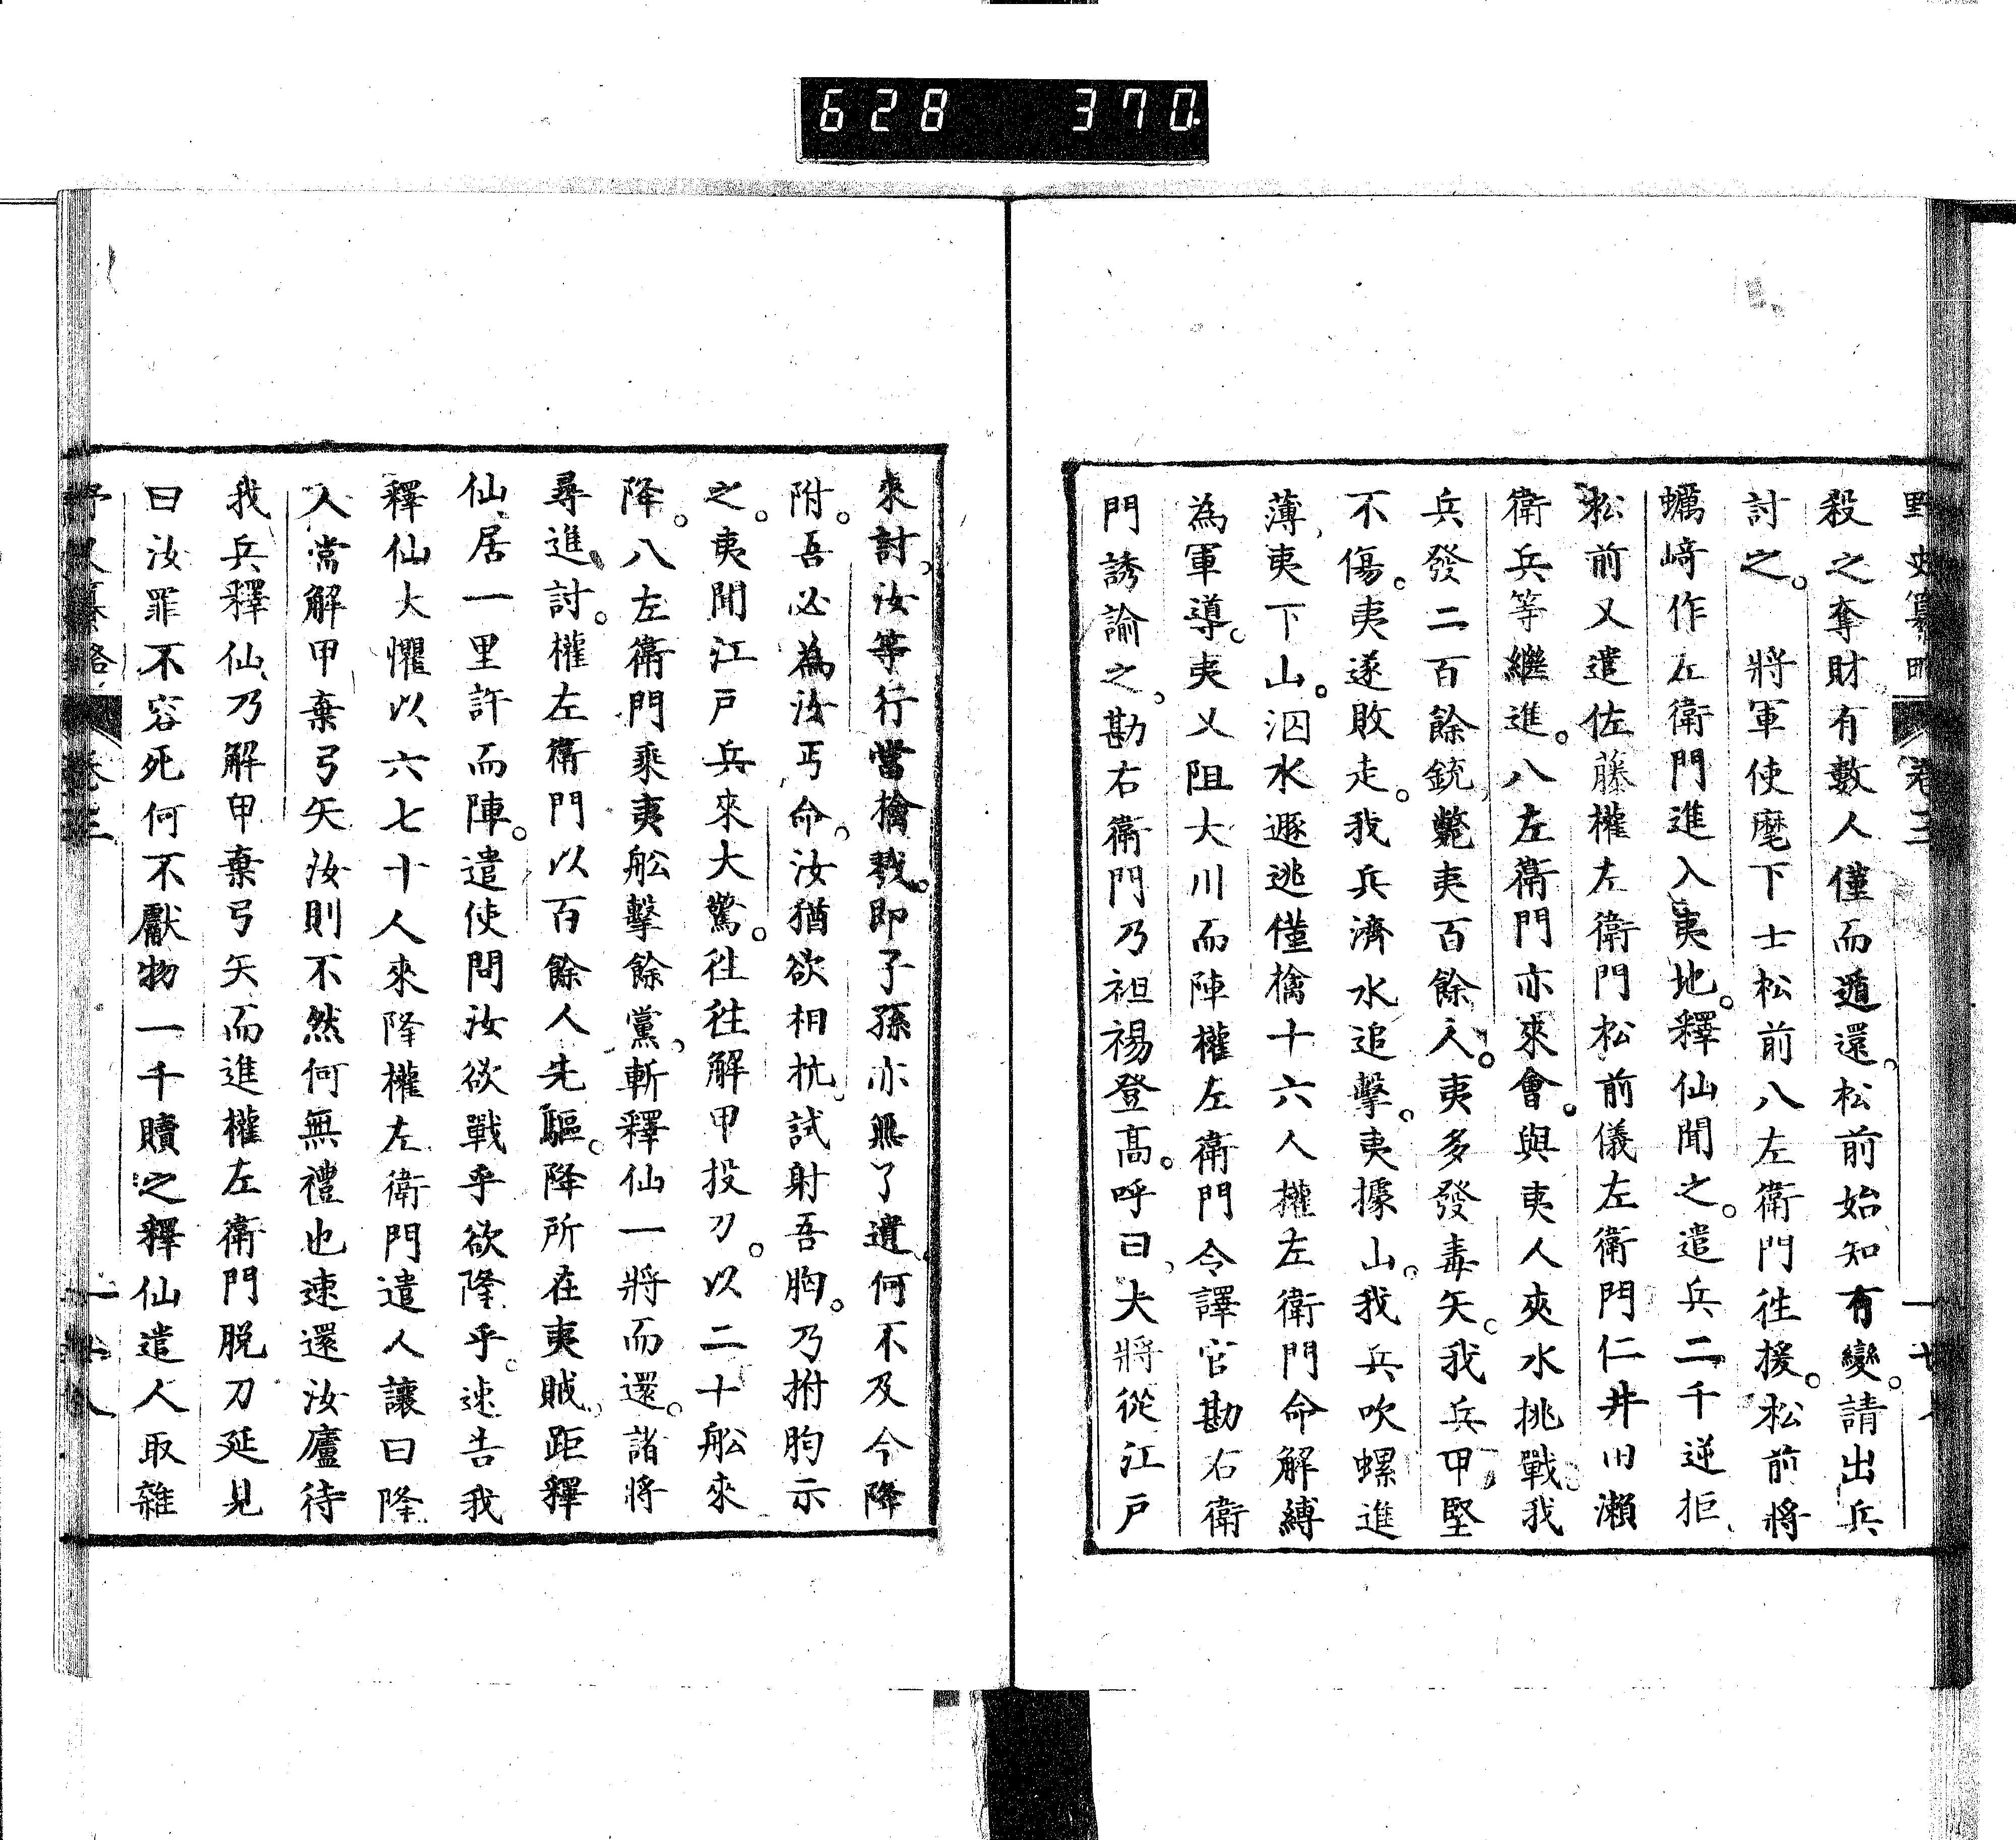 628 370
野史纂略 卷三 一十七
殺之奪財有數人僅而遁還松前始知有變請出兵
討之。 將軍使麾下士松前八左衛門往援。松前將
蠣﨑作左衛門進入夷地。釋仙聞之。遣兵二千逆拒
松前又遣佐藤權左衛門松前儀左衛門仁井田瀨
衛兵等繼進。八左衛門亦來會。與夷人夾水挑戰。我
兵發二百餘銃斃夷百餘人。夷多發毒矢。我兵甲堅
不傷。夷遂敗走。我兵濟水追擊。夷據山。我兵吹螺進
薄夷下山。泅水遯逃僅擒十六人權左衛門命解縛
為軍導。夷乂阻大川而陣權左衛門令譯官勘右衛
門誘諭之。勘右衛門乃袒裼登高。呼曰、大將從江戸
來討。汝等行當擒戮。即子孫亦無了遺何不及今降
附。吾必為汝丐命。汝猶欲相抗試射吾胸。乃拊胸示
之。夷聞江戸兵來大驚。往往解甲投刀。以二十舩來
降。八左衛門乘夷舩擊餘黨。斬釋仙一將而還。諸將
尋進討。權左衛門以百餘人先驅。降所在夷賊。距釋
仙居一里許而陣。遣使問汝欲戰乎欲降乎。速告我
釋仙大懼以六七十人來降權左衛門遣人讓曰降
人當解甲棄弓矢汝則不然何無禮也速還汝廬待
我兵釋仙乃解甲棄弓矢而進權左衛門脱刀延見
曰汝罪不容死何不獻物一千贖之釋仙遣人取雜
卷三 一十八